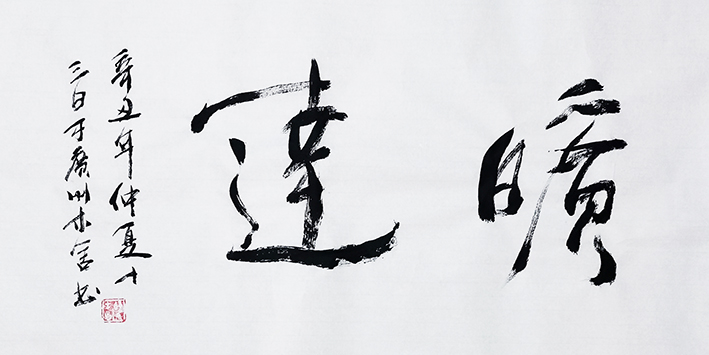 曠達
辛丑年仲夏十
三日于廣州木舍书